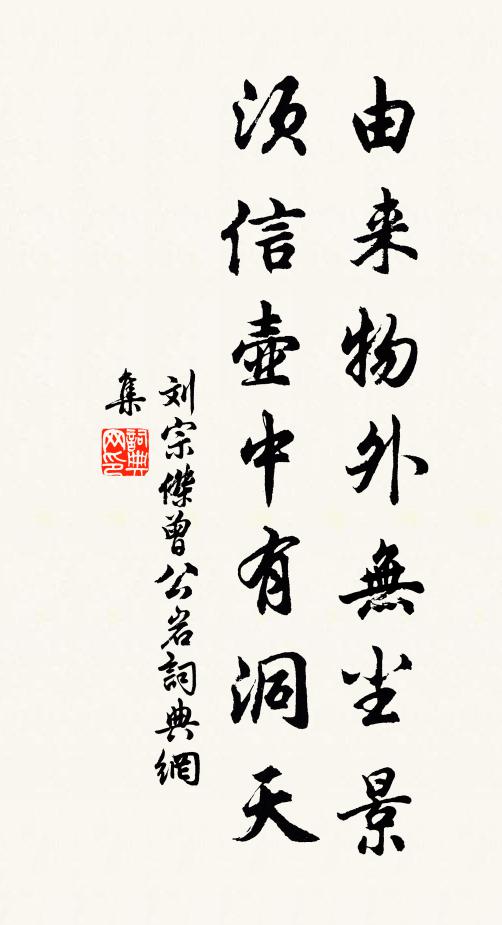 由来物外無尘景
須信壷中有洞天
刘宗傑曾公岩詞典網
集
詞典
网印